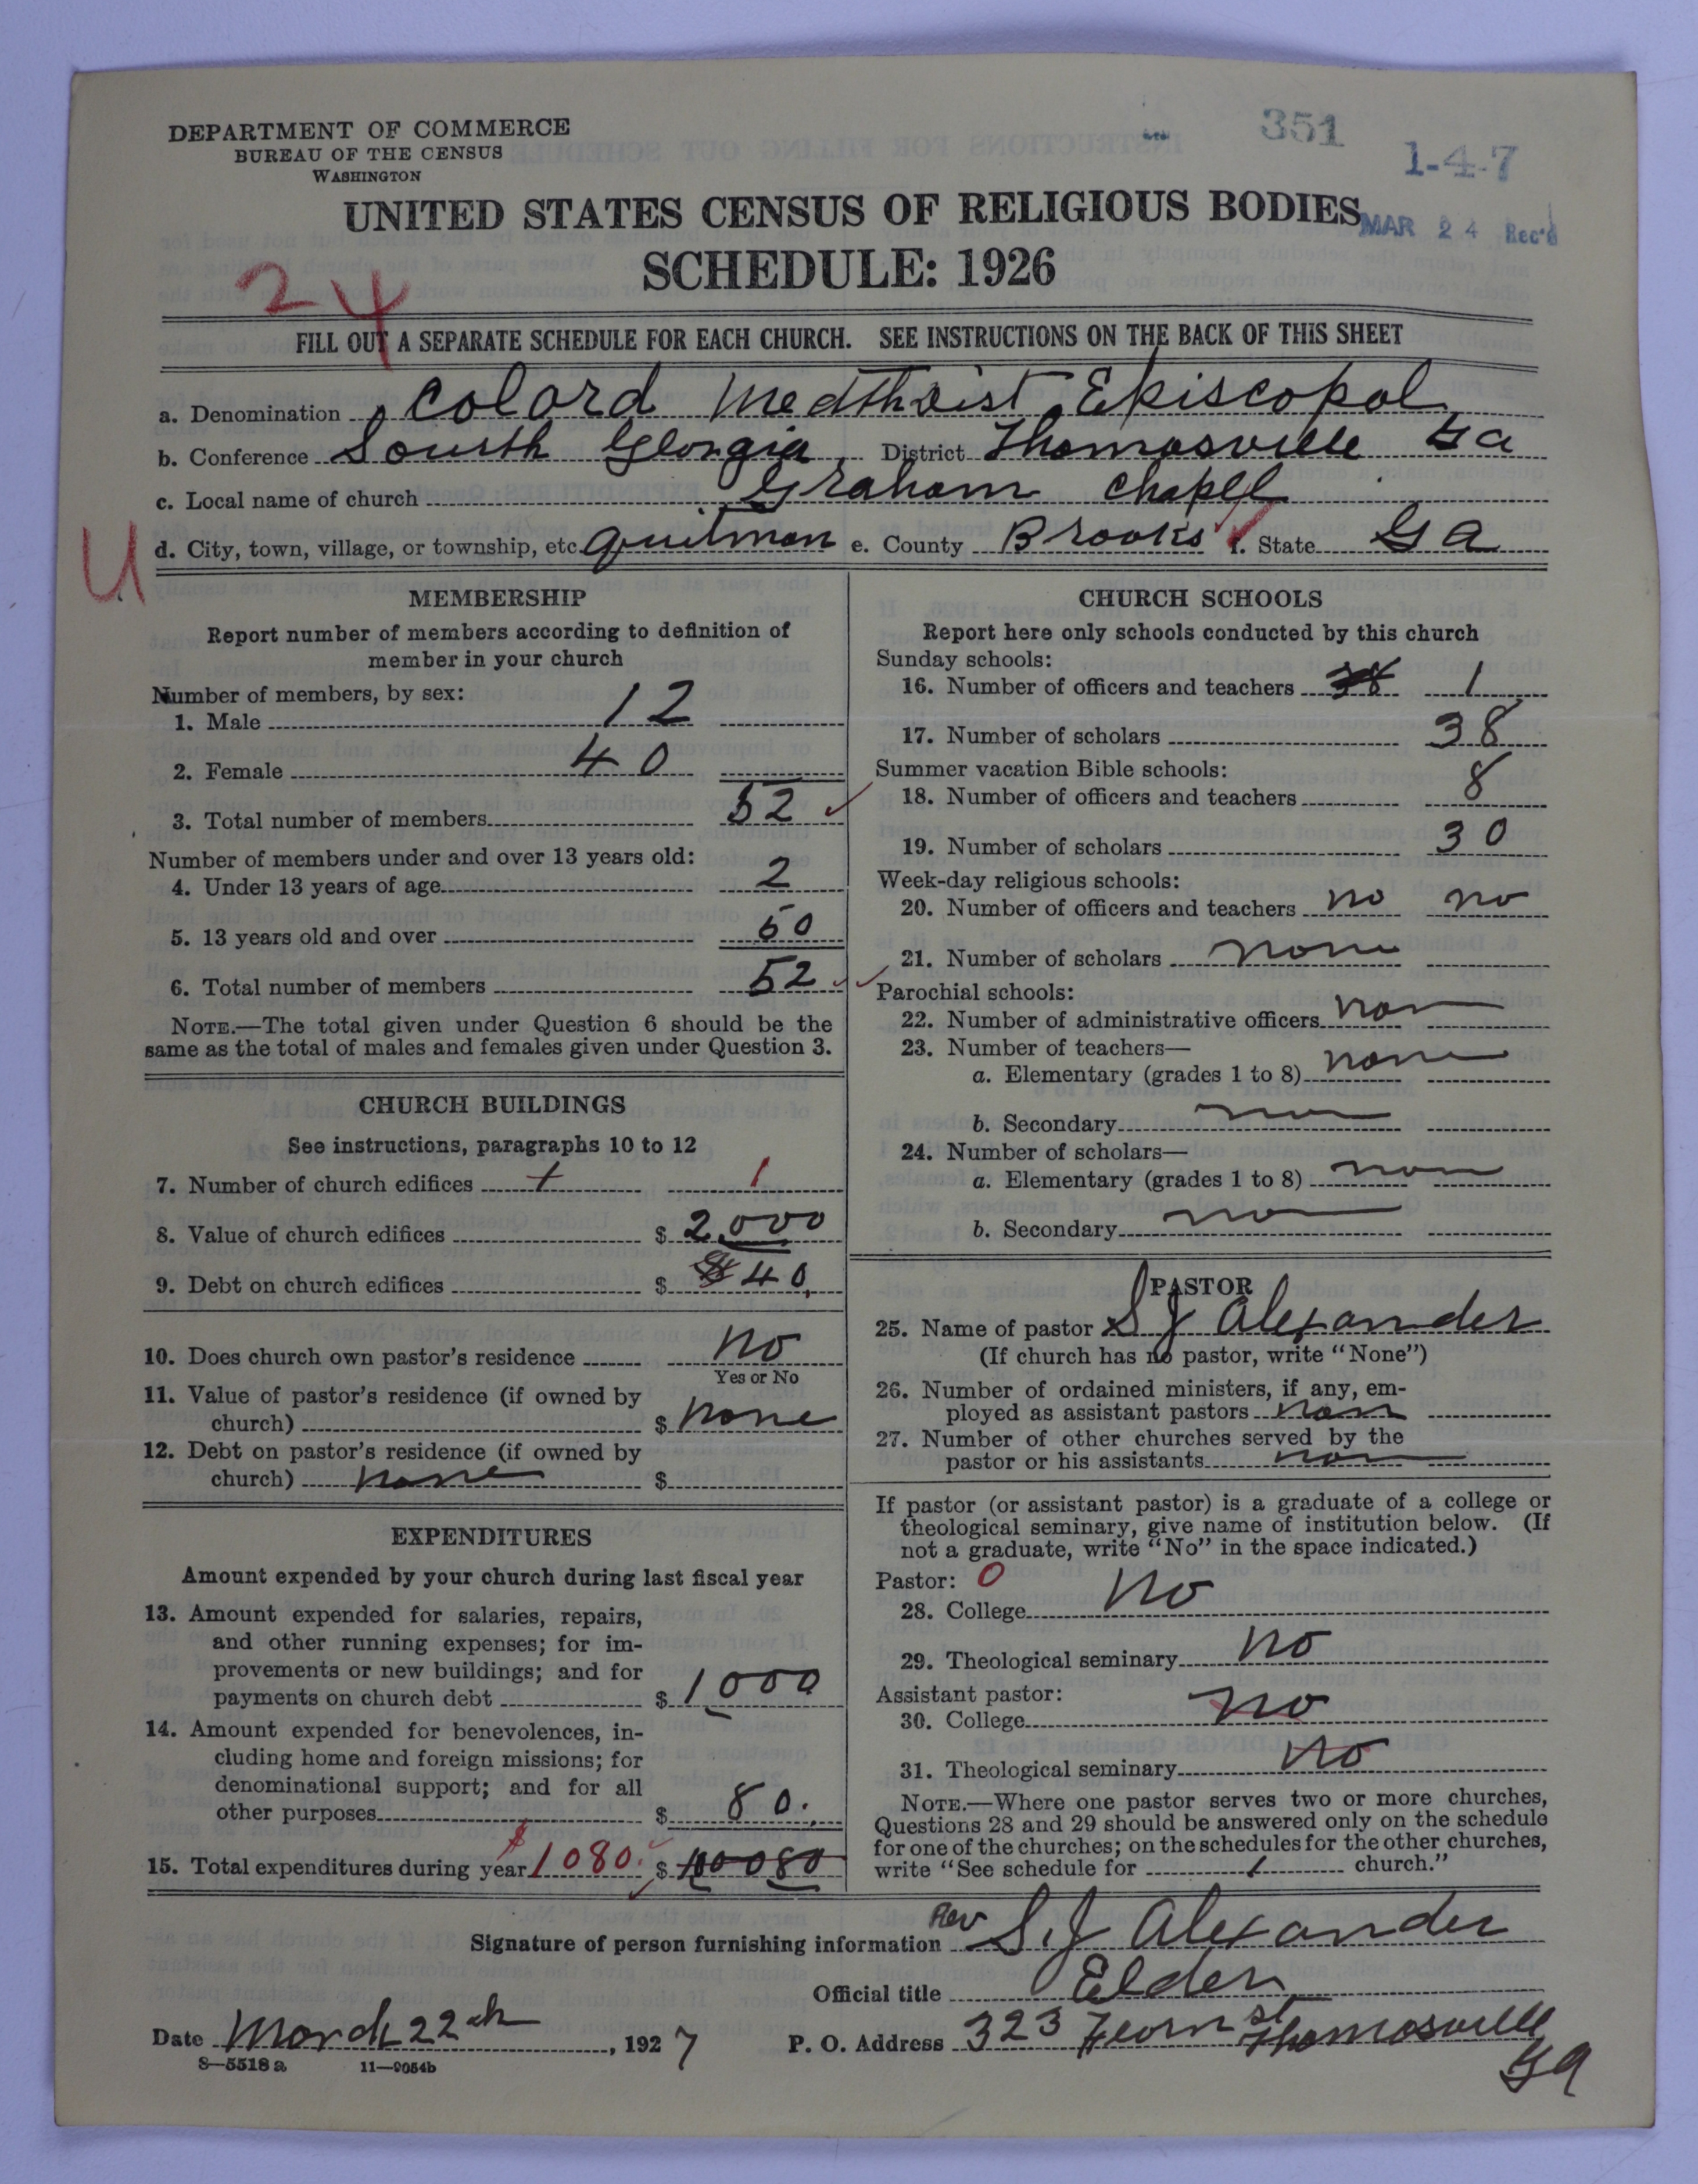 DEPARTMENT OF COMMERCE
BUREAU OF THE CENSUS
WASHINGTON
351
1-4-7
UNITED STATES CENSUS OF RELIGIOUS BODIES
MAR 24 Rec'd
SCHEDULE: 1926
24
FILL OUT A SEPARATE SCHEDULE FOR EACH CHURCH. SEE INSTRUCTIONS ON THE BACK OF THIS SHEET
a. Denomination Colord Medthoist Episcopol
b. Conference Sourth Georgia District Thomasville Ga
c. Local name of church Graham Chapel
U
d. City, town, village, or township, etc. Quitman e. County Brooks f. State Ga
MEMBERSHIP
Report number of members according to definition of
member in your church
Number of members, by sex:
1. Male 12
2. Female 40
3. Total number of members 52
Number of members under and over 13 years old:
4. Under 13 years of age 2
5. 13 years old and over 50
6. Total number of members 52
NOTE.—The total given under Question 6 should be the
same as the total of males and females given under Question 3.
CHURCH BUILDINGS
See instructions, paragraphs 10 to 12
7. Number of church edifices 1 1
8. Value of church edifices $ 2000
9. Debt on church edifices $ 40
10. Does church own pastor's residence no
Yes or No
11. Value of pastor's residence (if owned by
church) $ none
12. Debt on pastor's residence (if owned by
church) none $
EXPENDITURES
Amount expended by your church during last fiscal year
13. Amount expended for salaries, repairs,
and other running expenses; for im-
provements or new buildings; and for
payments on church debt $ 1000
14. Amount expended for benevolences, in-
cluding home and foreign missions; for
denominational support; and for all
other purposes $ 80.
15. Total expenditures during year $1080. $ 10080
CHURCH SCHOOLS
Report here only schools conducted by this church
Sunday schools:
16. Number of officers and teachers 38 1
17. Number of scholars 38
Summer vacation Bible schools:
18. Number of officers and teachers 8
19. Number of scholars 30
Week-day religious schools:
20. Number of officers and teachers no no
21. Number of scholars none
Parochial schools:
22. Number of administrative officers non
23. Number of teachers—
a. Elementary (grades 1 to 8) none
b. Secondary no
24. Number of scholars—
a. Elementary (grades 1 to 8) non
b. Secondary no
PASTOR
25. Name of pastor S J Alexander
(If church has no pastor, write "None")
26. Number of ordained ministers, if any, em-
ployed as assistant pastors non
27. Number of other churches served by the
pastor or his assistants non
If pastor (or assistant pastor) is a graduate of a college or
theological seminary, give name of institution below. (If
not a graduate, write "No" in the space indicated.)
Pastor: 0
28. College no
29. Theological seminary no
Assistant pastor:
30. College no
31. Theological seminary no
NOTE.—Where one pastor serves two or more churches,
Questions 28 and 29 should be answered only on the schedule
for one of the churches; on the schedules for the other churches,
write "See schedule for 1 church."
Signature of person furnishing information Rev S. J Alexander
Official title Elder
Date March 22th, 1927 P. O. Address 323 st Thomasville
Ga
8—5518 a 11—9054b